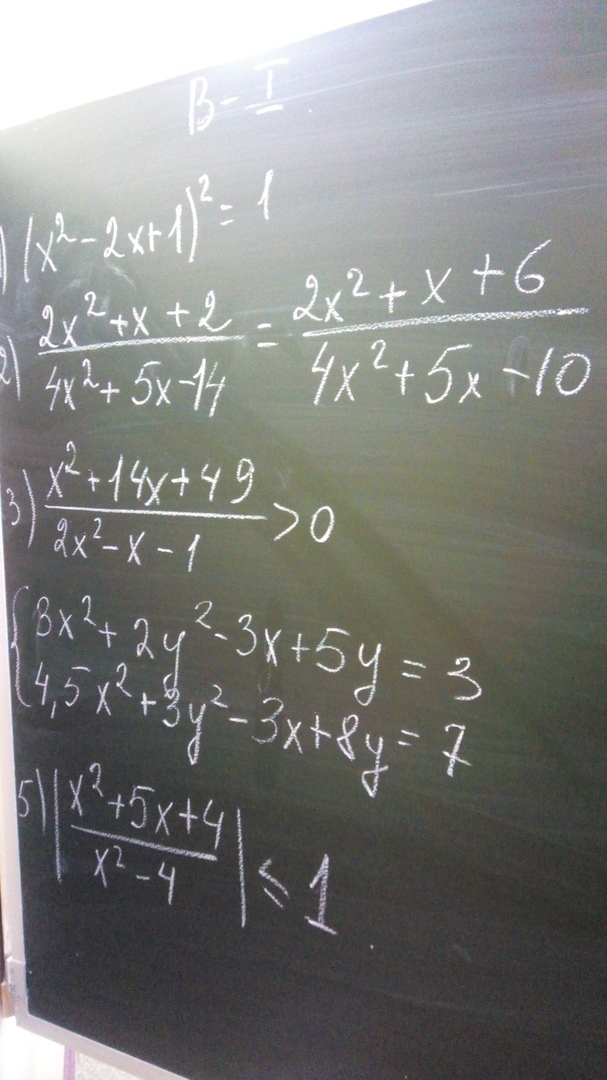 В-I
1) (x²-2x+1)²=1
2) (2x²+x+2)/(4x²+5x-14) = (2x²+x+6)/(4x²+5x-10)
3) (x²+14x+49)/(2x²-x-1) >0
{ 3x²+2y²-3x+5y=3
4,5x²+3y²-3x+8y=7
5) |(x²+5x+4)/(x²-4)| ≤ 1